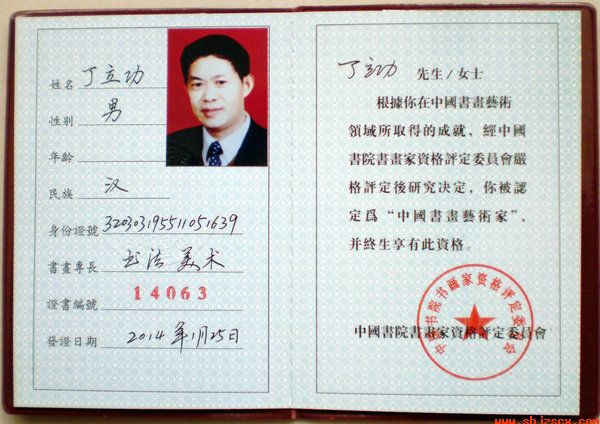 姓名 丁立功
性别 男
年齡
民族 汉
身份證號 320303195511051639
書畫專長 书法 美术
證書編號 14063
發證日期 2014年1月25日
丁立功 先生/女士
根據你在中國書畫藝術
領域所取得的成就，經中國
書院書畫家資格評定委員會嚴
格評定後研究决定，你被認
定爲“中國書畫藝術家”，
并終生享有此資格。
中國書院書畫家資格評定委員會
中国书院书画家资格评定委员会
www.shjzscx.com